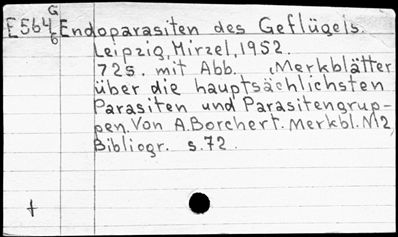 G
E564 Endoparasiten des Geflügels.
6
Leipzig, Hirzel, 1952.
72s. mit Abb. (Merkblätter
über die hauptsächlichsten
Parasiten und Parasitengrup-
pen. Von A. Borchert. Merkbl. N12)
Bibliogr. s.72.